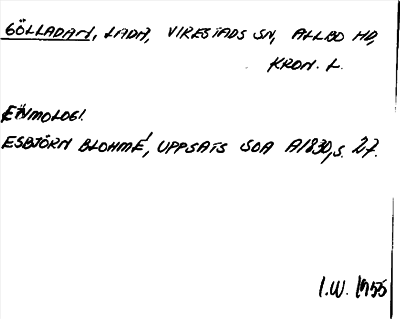 GÖLLADAN, LADA, VIRESTADS SN, ALLBO HD,
KRON. L.
ETYMOLOGI.
ESBJÖRN BLOHMÉ, UPPSATS SOA A1830, S. 27.
I.W. 1955